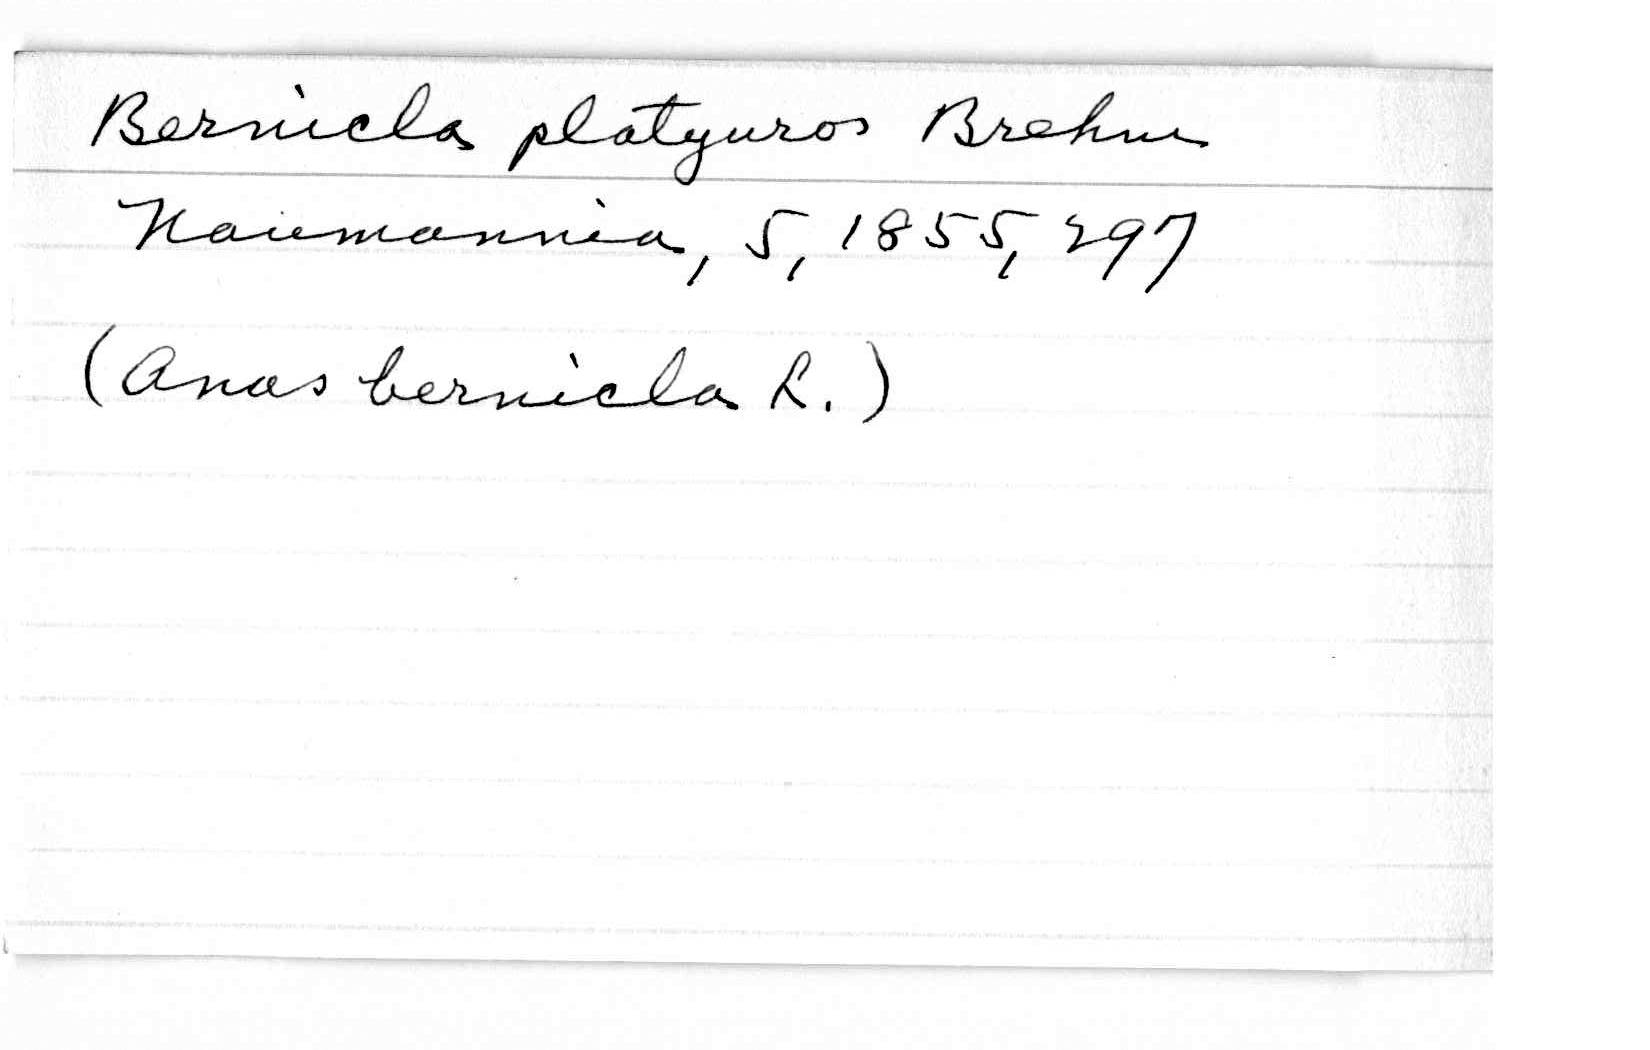 Bernicla platyuros Brehm
Naumannia, 5, 1855, 297
(Anas bernicla L.)